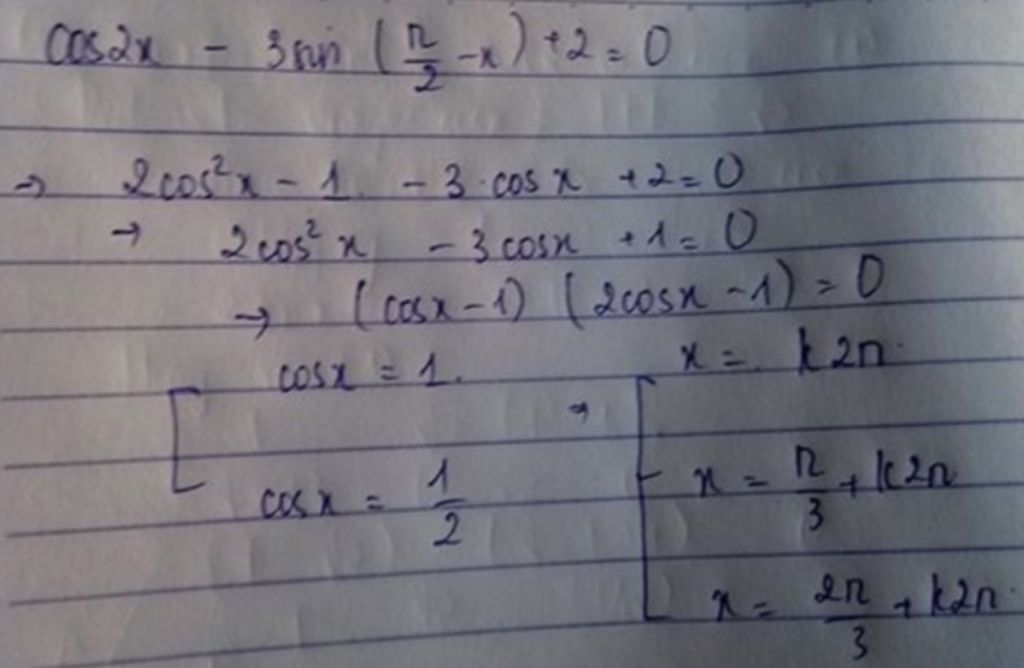 cos2x - 3sin (π/2 - x) + 2 = 0
→ 2cos²x - 1 - 3·cosx + 2 = 0
→ 2cos²x - 3cosx + 1 = 0
→ (cosx - 1) (2cosx - 1) = 0
[ cosx = 1. → [ x = k2π.
cosx = 1/2 x = π/3 + k2π
x = 2π/3 + k2π.